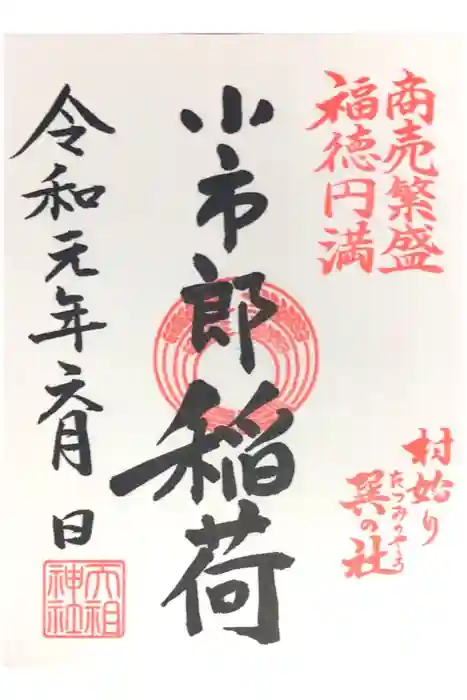 商売繁盛
福徳円満
村始り
巽の社
たつみのやしろ
小市郎稲荷
令和元年六月 日
大祖神社